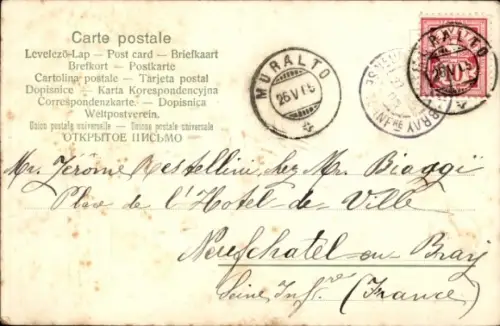 Carte postale
Levelező-Lap — Post card — Briefkaart
Brefkort — Postkarte
Cartolina postale — Tarjeta postal
Dopisnice — Karta Korespondencyjna
Correspondenzkarte. — Dopisnica
Weltpostverein.
Union postale universelle — Unione postale universale
ОТКРЫТОЕ ПИСЬМО
MURALTO
26 V 05
RALTO
Mr. Jérôme Restellini chez Mr. Biaggï
Place de l'Hotel-de-Ville
Neufchatel-en-Bray
Seine Infre (France)